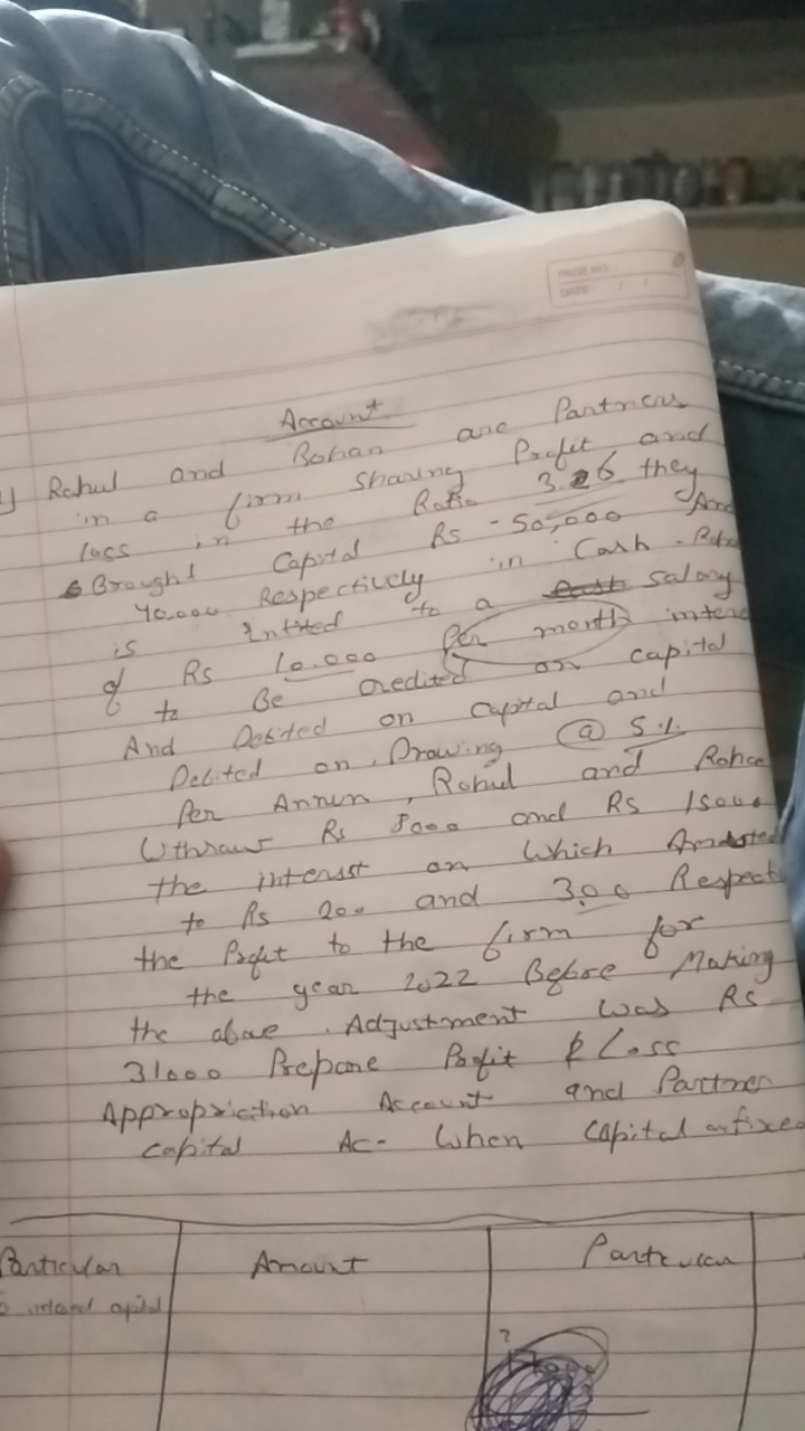 PAGE NO.
DATE: / /
Account
Rahul and Rohan are Partners
in a firm sharing Profit and
loss in the Ratio 3 6 they
Brought Capital Rs - 50,000 And
40,000 Respectively in Cash -
is Intited to a salary
of Rs 10.000 Per month
to Be credited on capital
And Debited on capital and
Debited on Drawing @ 5 %
Per Annum, Rahul and
Withraw Rs 8000 and Rs 15000
the interest on Which
to Rs 200 and 300 Respect
the Profit to the firm for
the year 2022 Before Making
the above Adjustment was Rs
31000 Prepare Profit & Loss
Appropriction Account and Partner
capital Ac- When capital fixed
Particular Amount Particular
capital
?